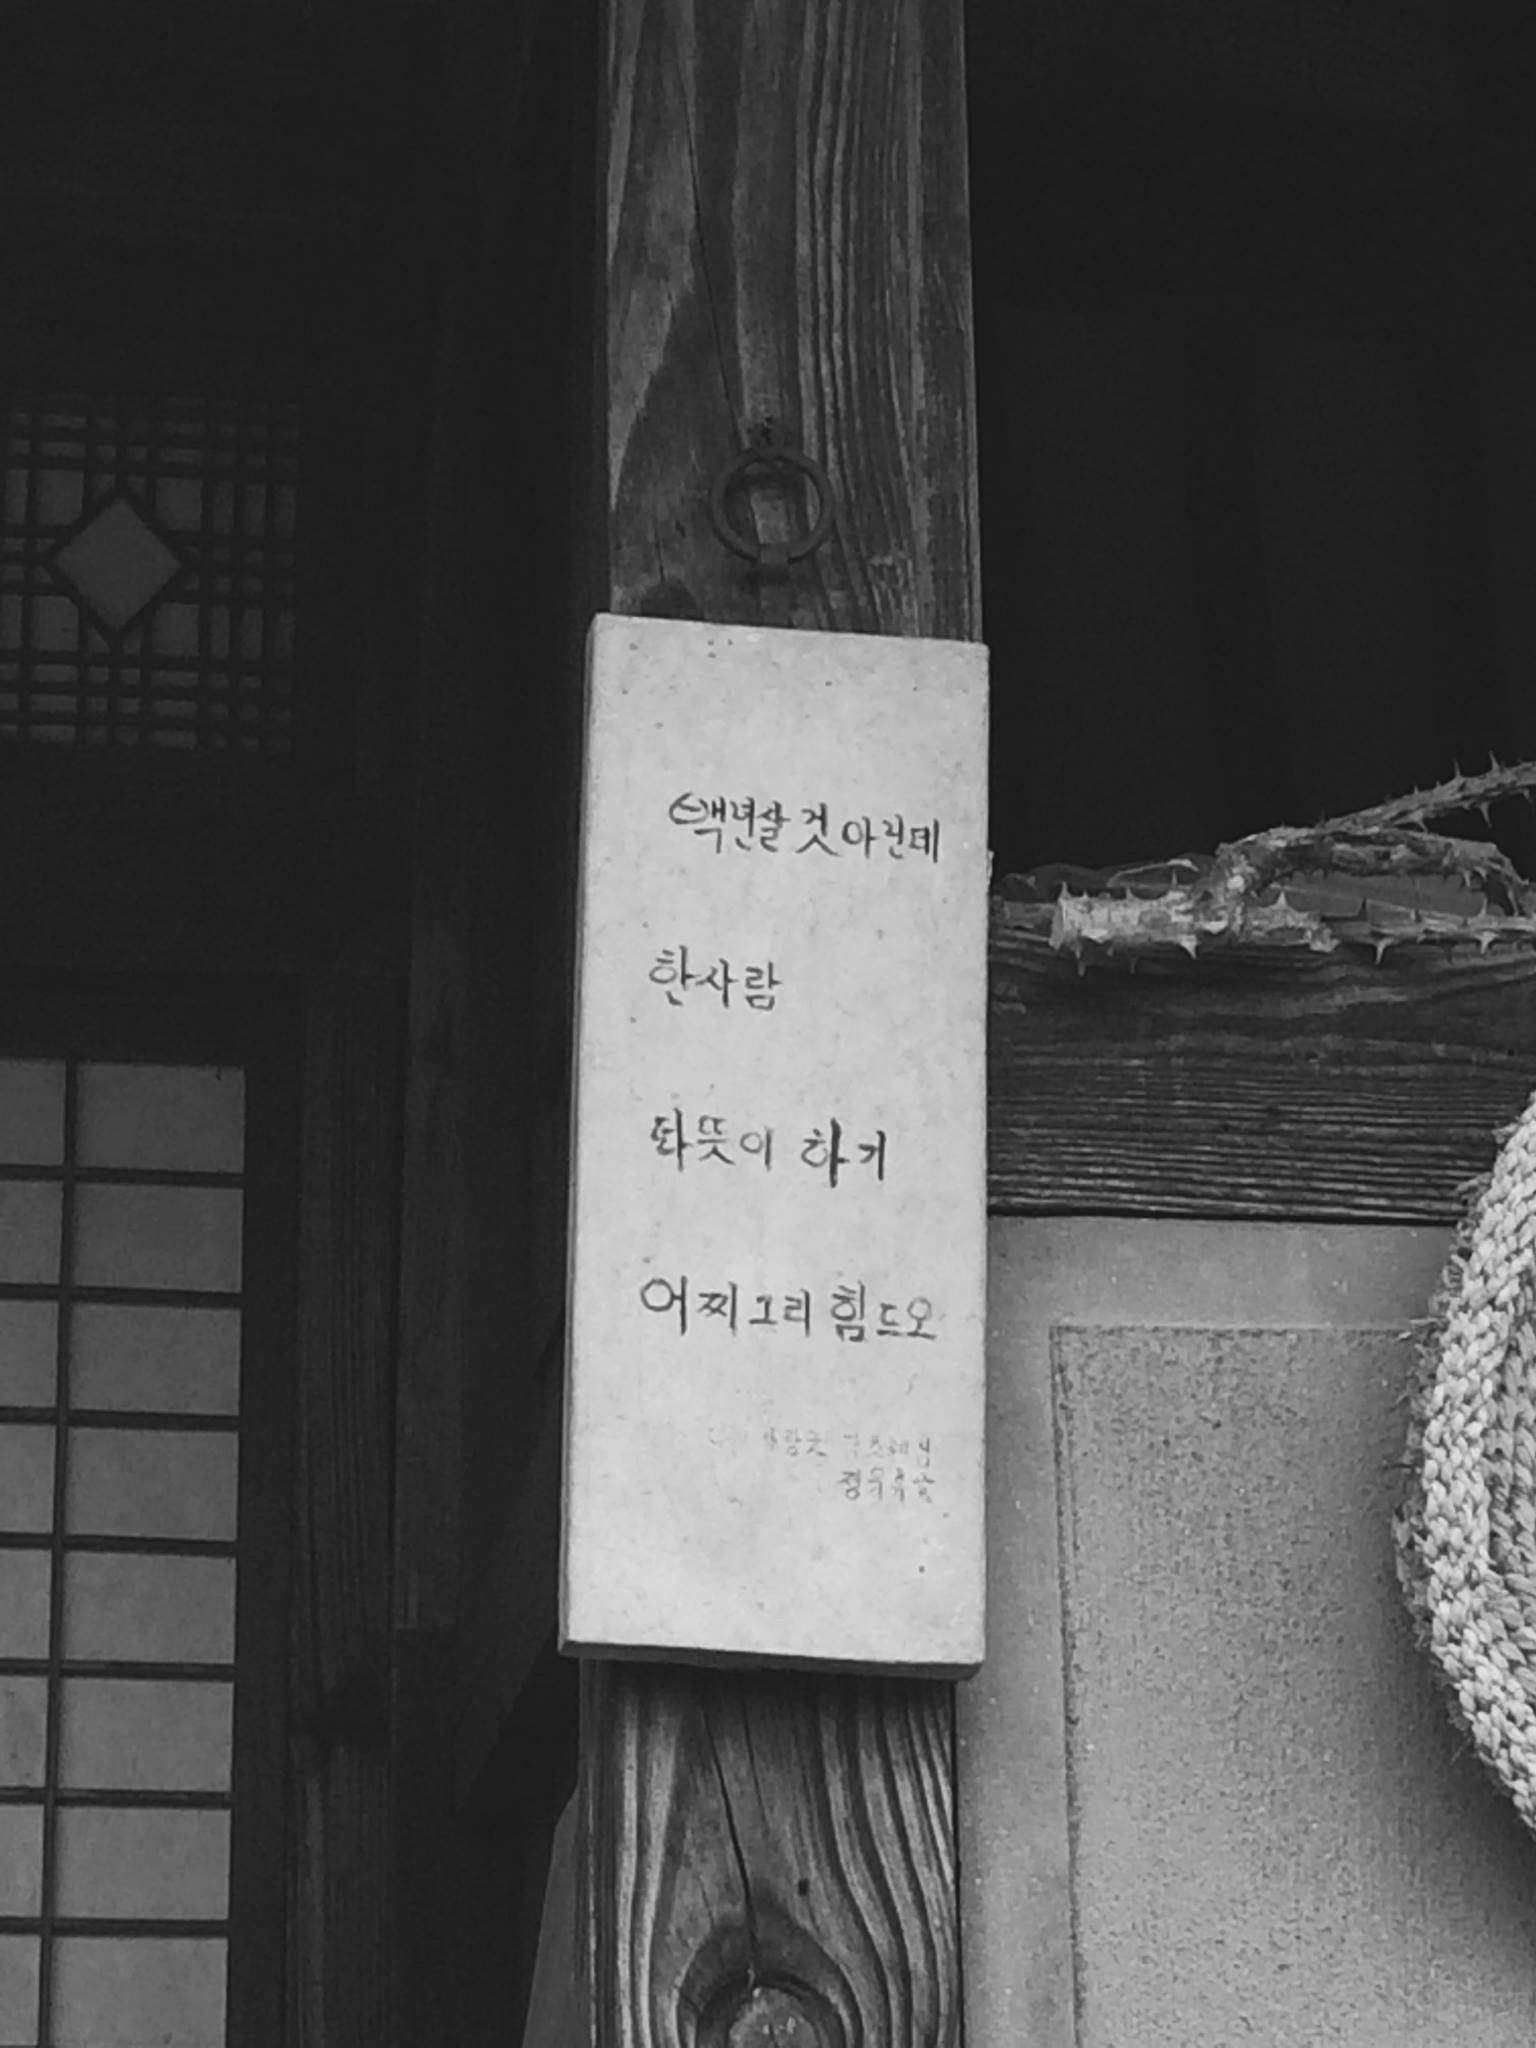 백년살 것 아닌데
한사람
따뜻이 하기
어찌 그리 힘드오